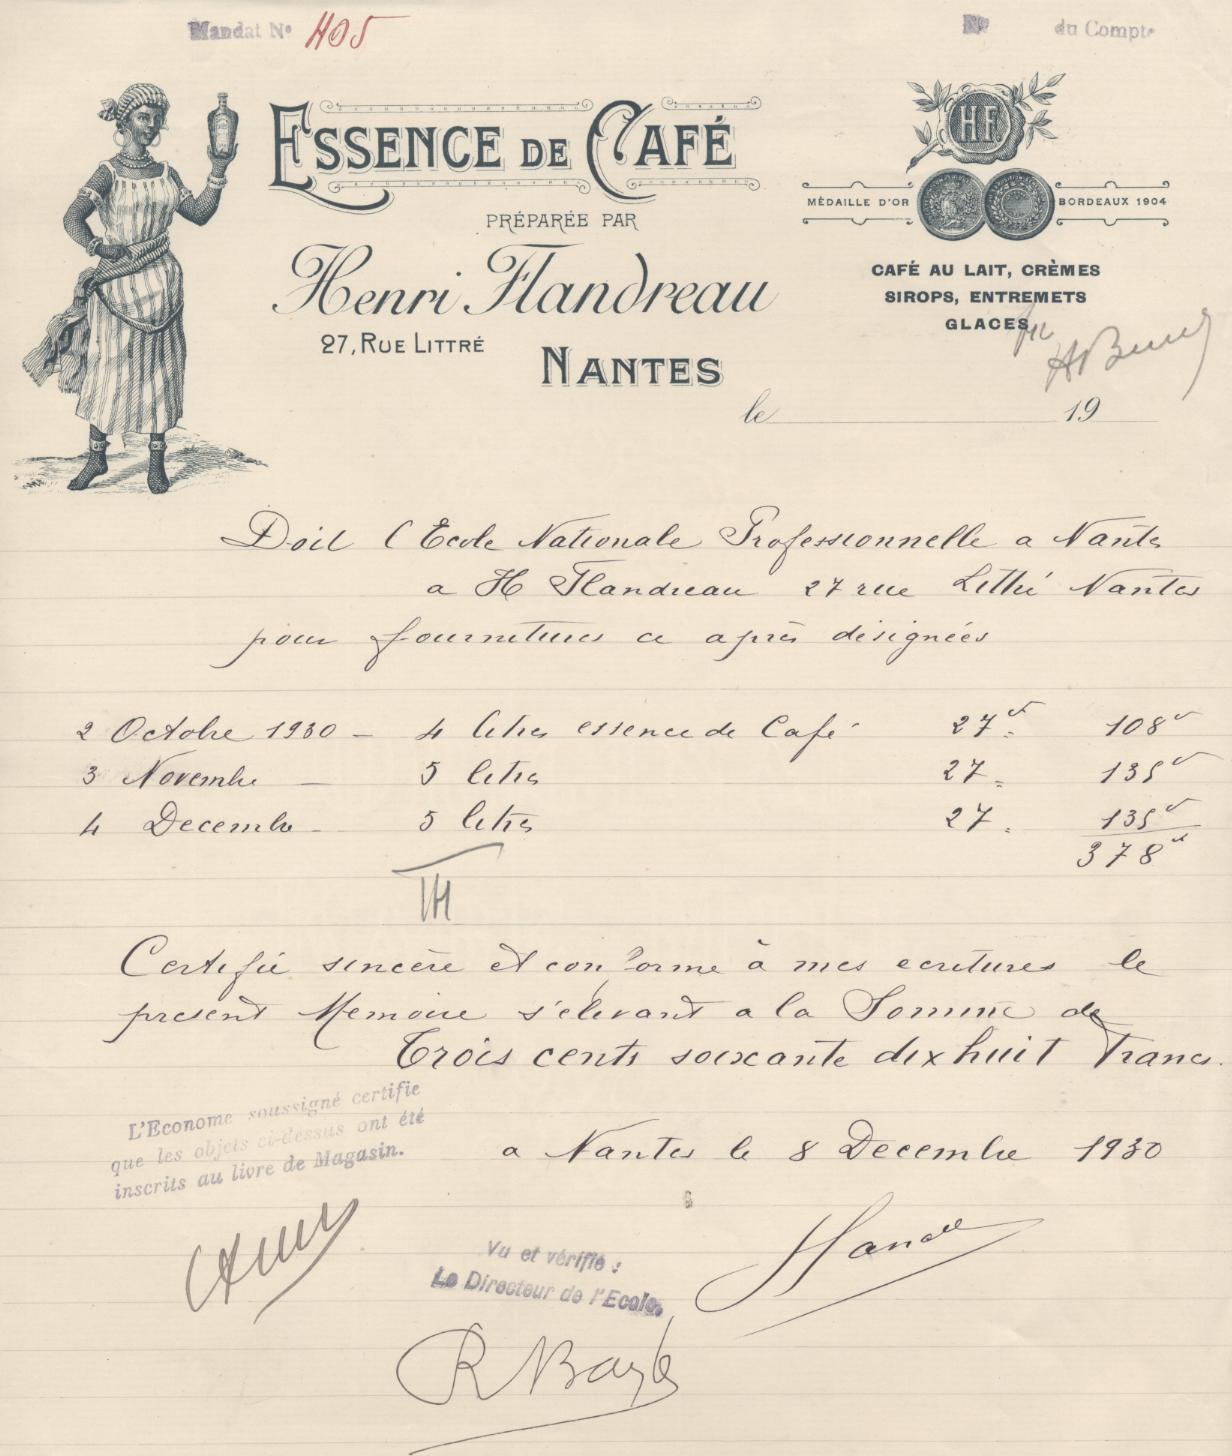 Mandat N° 405
N° du Compte
ESSENCE DE CAFÉ
PRÉPARÉE PAR
Henri Flandreau
27, RUE LITTRÉ
NANTES
HF
MÉDAILLE D'OR BORDEAUX 1904
CAFÉ AU LAIT, CRÈMES
SIROPS, ENTREMETS
GLACES
le 19
Doit l'Ecole Nationale Professionnelle a Nantes
a H Flandreau 27 rue Littré Nantes
pour fournitures ce après désignées
2 Octobre 1930 - 4 litres essence de Café 27 108
3 Novembre - 5 litres 27 135
4 Decembre - 5 litres 27 135
378
Certifié sincère et conforme à mes ecritures le
present Memoire s'elevant a la Somme de
Trois cents soixante dix huit Francs.
L'Econome soussigné certifie
que les objets ci-dessus ont été
inscrits au livre de Magasin.
a Nantes le 8 Decembre 1930
Vu et vérifié :
Le Directeur de l'Ecole,